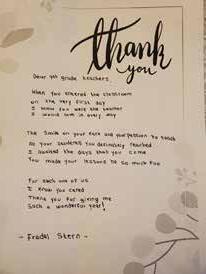 thank
you
Dear 4th grade teachers
When you entered the classroom
on the very first day
I knew you were the teacher
I would love in every way
The smile on your face and your passion to teach
All your students you definitely reached
I awaited the days that you came
You made your lessons to so much fun
For each one of us
I know you cared
Thank you for giving me
Such a wonderful year!
- Fradel Stern -